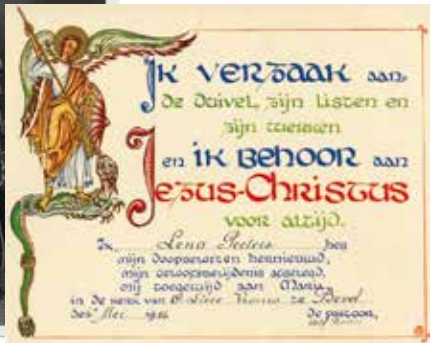 Ik verzaak aan
de duivel, zijn listen en
zijn werken
en ik behoor aan
Jezus-Christus
voor altijd.
Ik, Lena Peeters heb
mijn doopbeloften hernieuwd,
mijn geloofsbelijdenis afgelegd,
mij toegewijd aan Maria,
in de kerk van O. Lieve Vrouw te Bevel
de Mei
de pastoor,